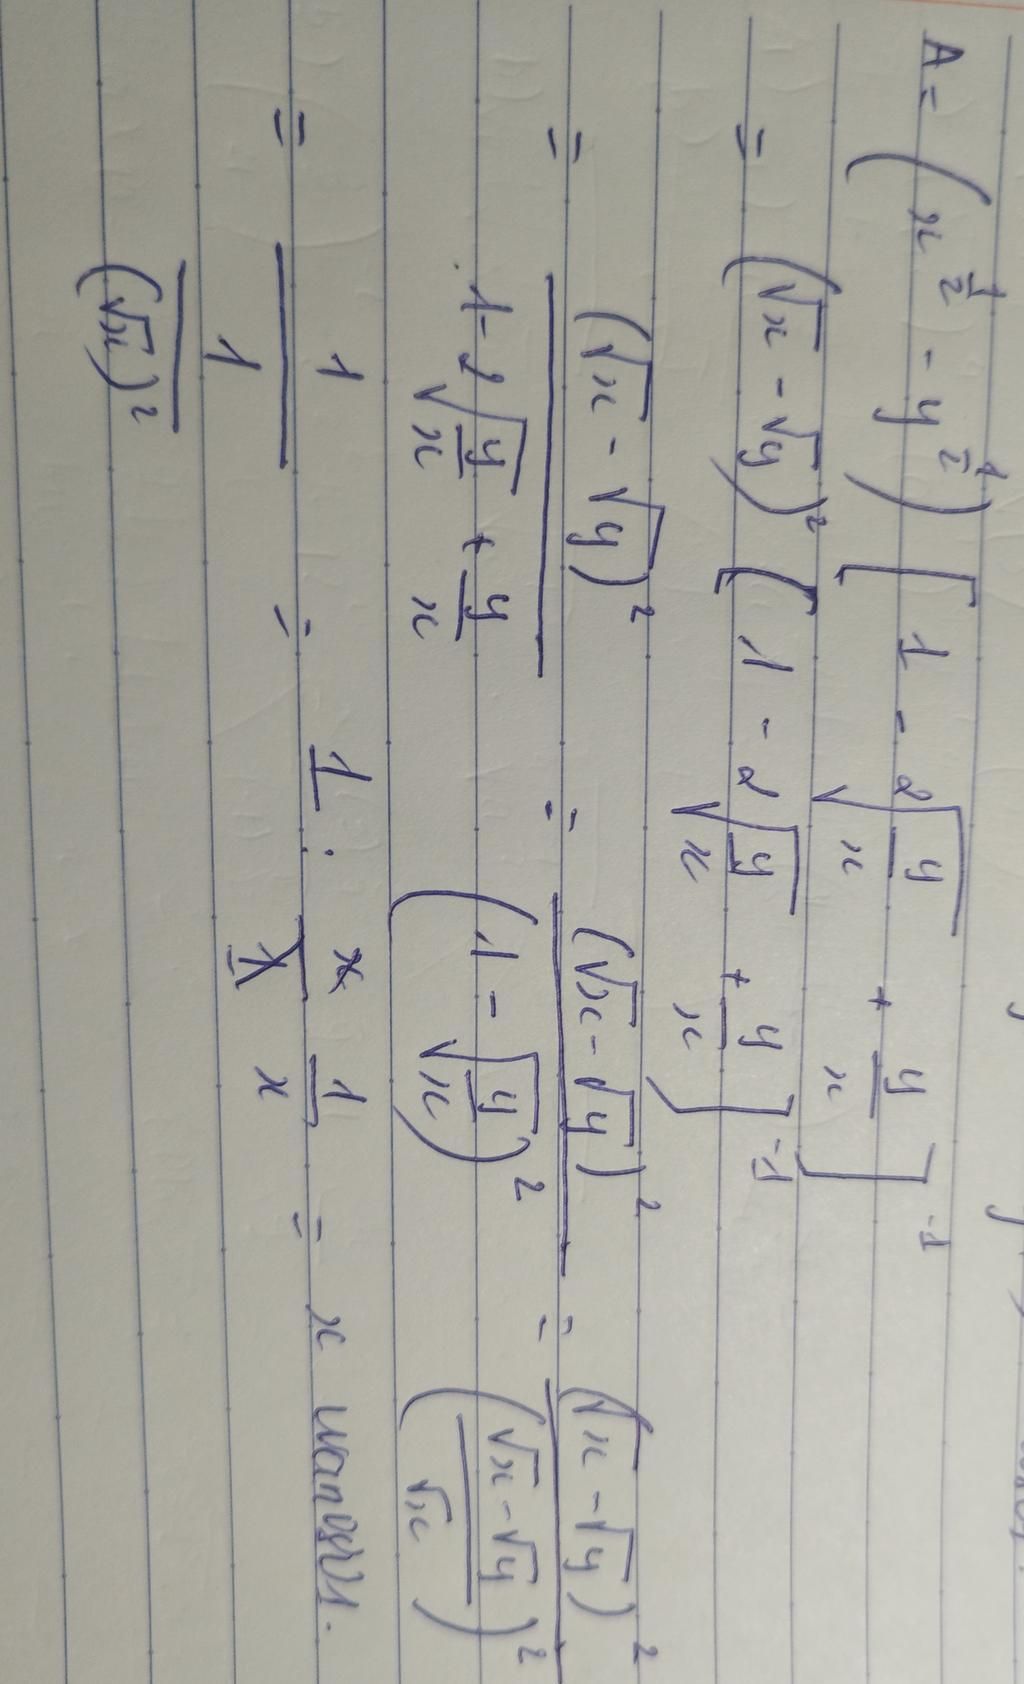 A = (x^{1/2} - y^{1/2}) [1 - 2√(y/x) + y/x]^{-1}
= (√x - √y)^2 [1 - 2√(y/x) + y/x]^{-1}
= (√x - √y)^2 / (1 - 2√(y/x) + y/x) = (√x - √y)^2 / (1 - √(y/x))^2 = (√x - √y)^2 / ((√x - √y)/√x)^2
= 1 / (1/(√x)^2) = 1 : 1/x = x